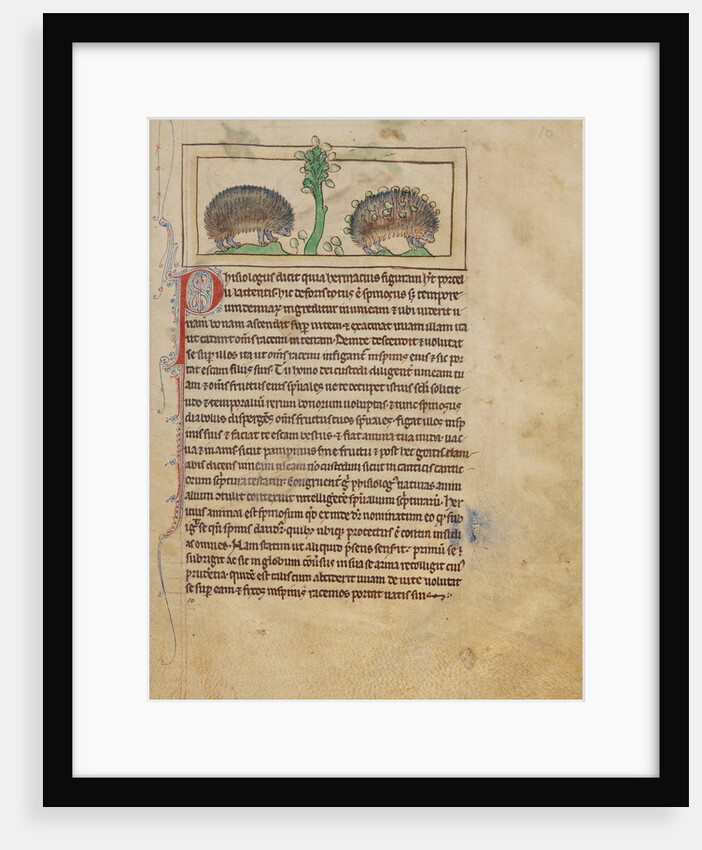 10
Phisiologus dicit quia herinatius figuram ht porcel
li lactentis. hic deforis totus ē spinosus. sz tempore
uindemiarum ingreditur in uineam. & ubi uiderit u
uam bonam ascendit sup uitem. & exacinat uuam illam ita
ut cadant oms racemi in terram. Deinde descendit & uolutat
se sup illos ita ut oms racemi infigantr in spinis eius. & sic por
tat escam filiis suis. Tu homo dei custodi diligentr uineam tu
am & oms fructus eius spuales ne te occupet istius scli solicit
udo & temporaliu rerum bonorum uoluptas. & tunc spinosus
diabolus dispergens oms fructus tuos spuales. figat illos in sp
inis suis & faciat te escam bestiis. & fiat anima tua nuda. uac
ua & inanis sicut pampinus sine fructu. & post hec gratis clam
abis dicens uineam meam non custodiui sicut in canticis cantic
orum scptura testatur. Congruentr g phisiologus naturas anim
alium
contexuit intelligentie spiritalium scpturarum. Her
tius animal est spinosum qd exinde dr nominatum eo qd sub
igit se qn spinis
clauditr. quibus ubiqz protectus ē contra insidi
as omnes. Nam statim ut aliquid psens senserit. primum se
subrigit ac sic in globum conuersus in sua se arma recolligit. cuius
prudentia quidem est talis cum absciderit uuam de uite uolutat
se sup eam & fixos in spinis racemos portat natis suis